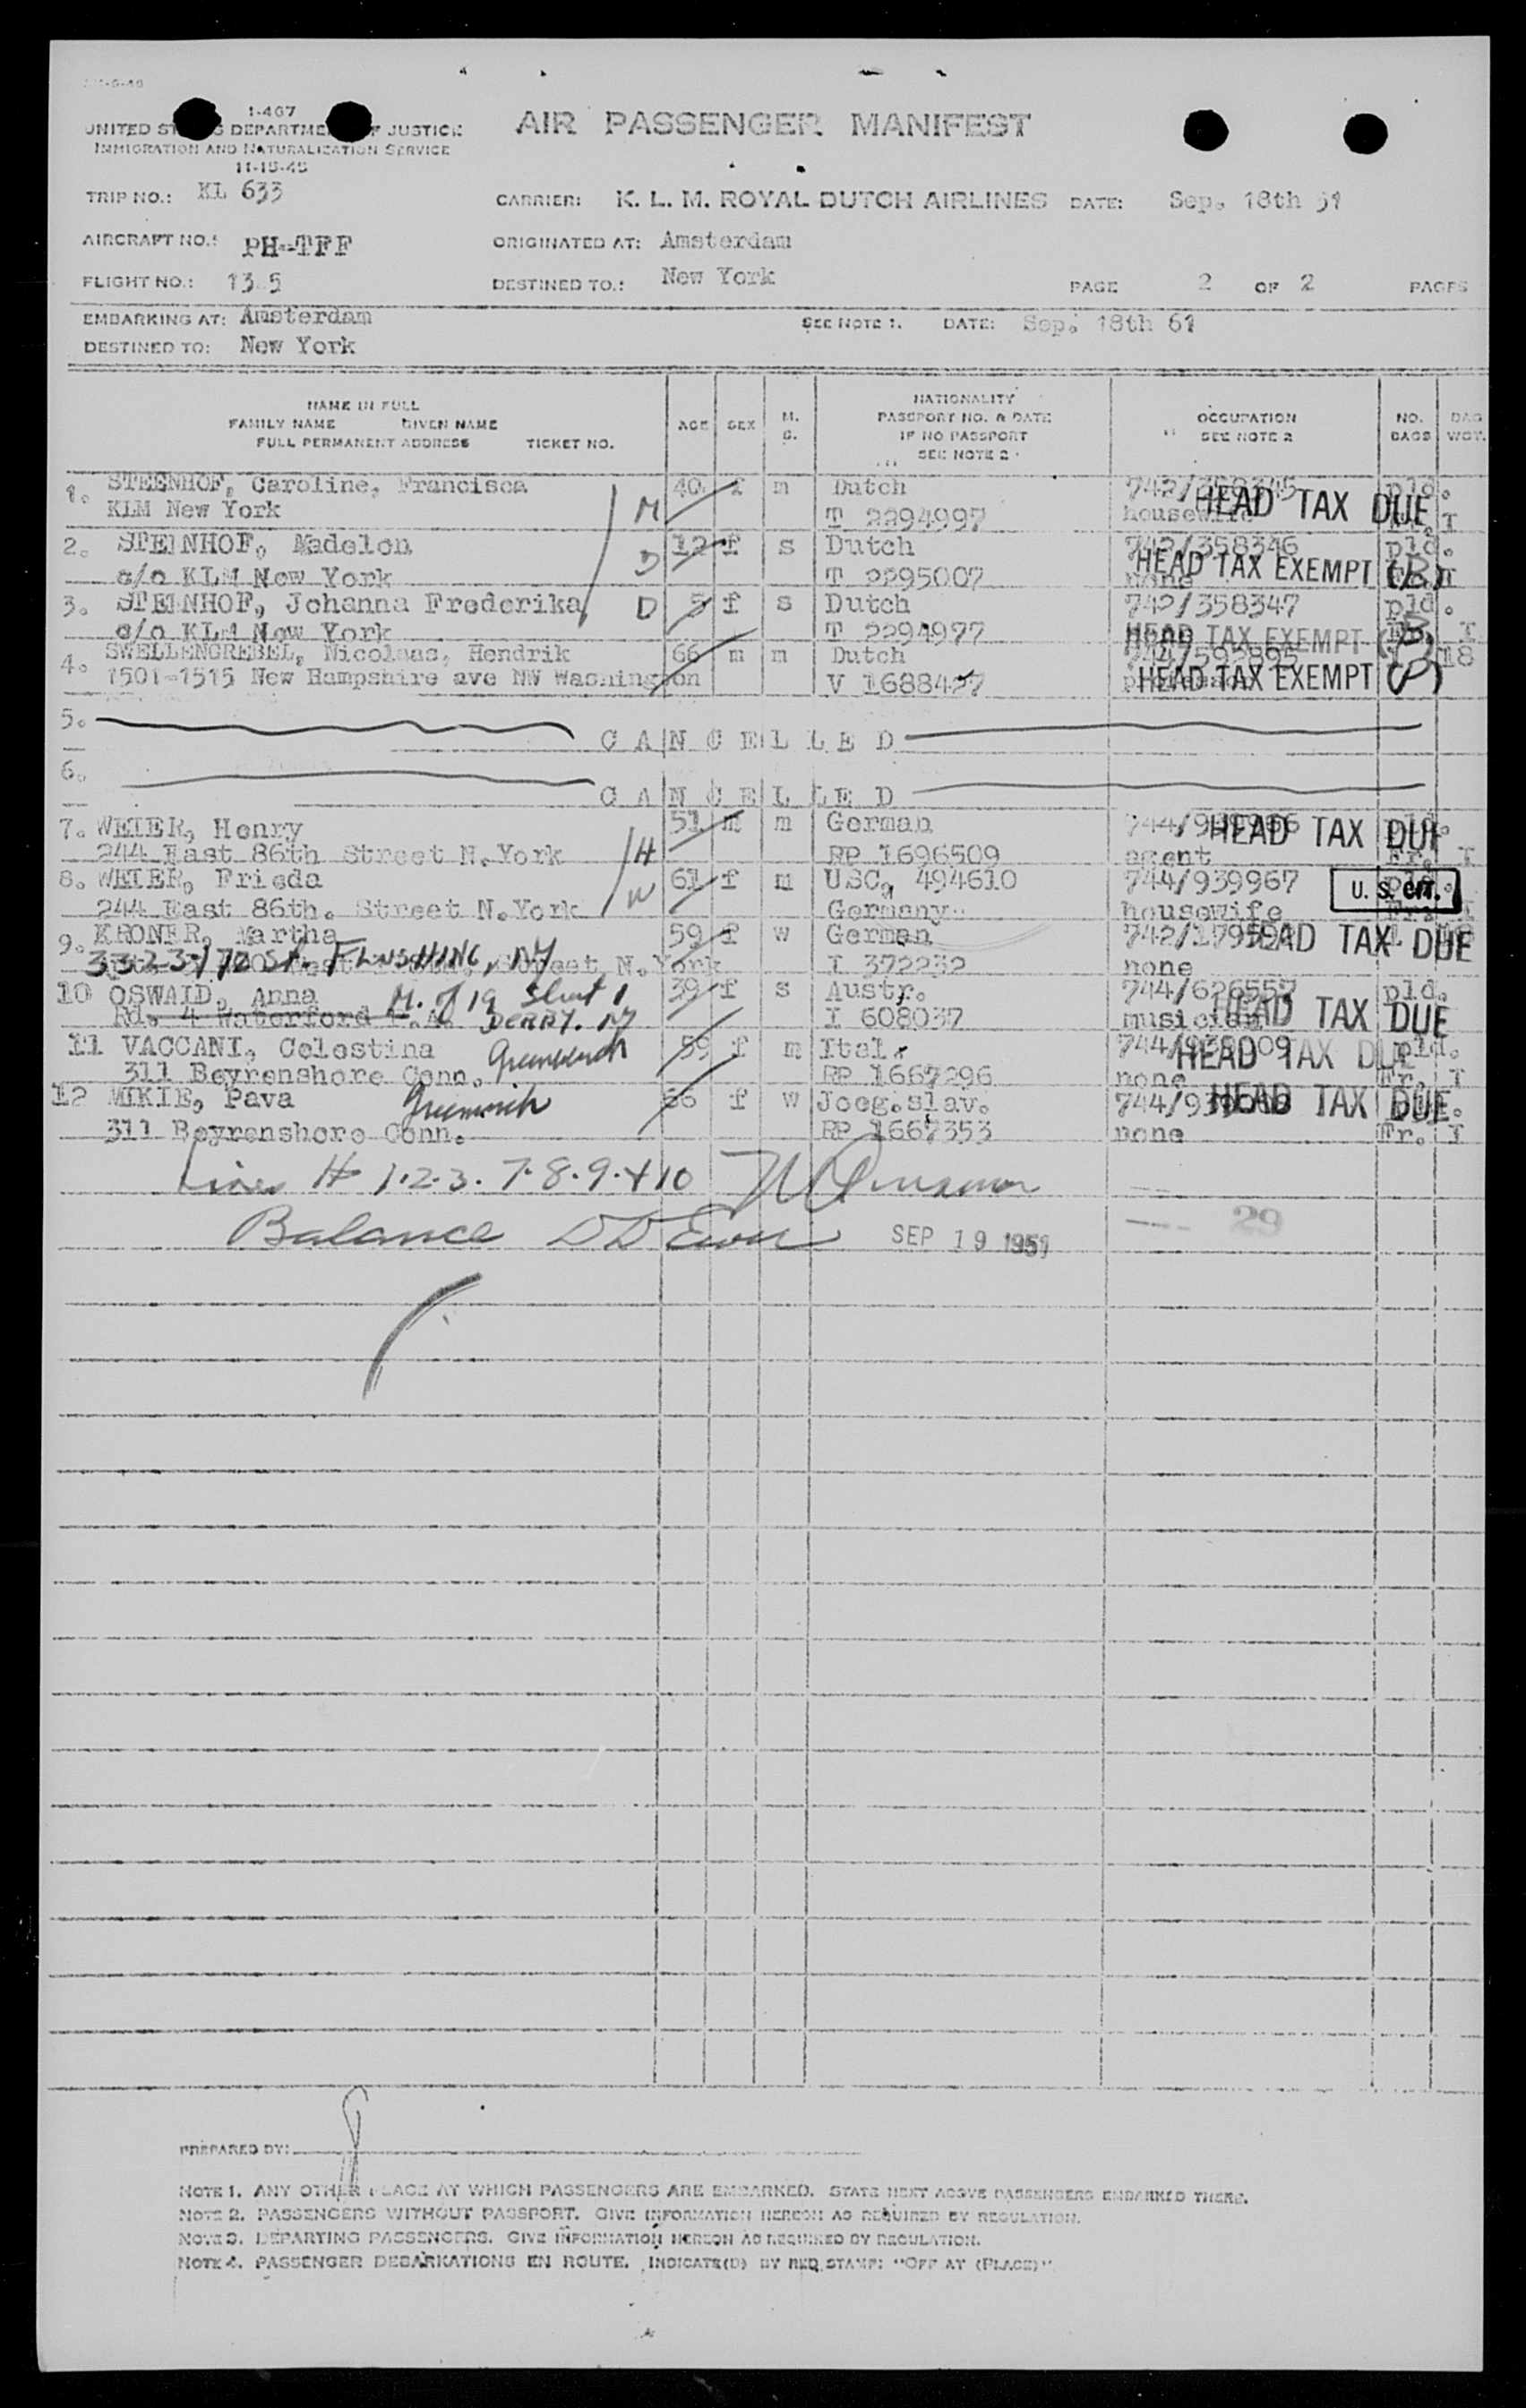 I-467
UNITED STATES DEPARTMENT OF JUSTICE
IMMIGRATION AND NATURALIZATION SERVICE
11-15-45
AIR PASSENGER MANIFEST
TRIP NO.: KL 633 CARRIER: K. L. M. ROYAL DUTCH AIRLINES DATE: Sep. 18th 51
AIRCRAFT NO.: PH-TFF ORIGINATED AT: Amsterdam
FLIGHT NO.: 13 5 DESTINED TO.: New York PAGE 2 OF 2 PAGES
EMBARKING AT: Amsterdam SEE NOTE 1. DATE: Sep. 18th 61
DESTINED TO: New York
NAME IN FULL
FAMILY NAME GIVEN NAME
FULL PERMANENT ADDRESS TICKET NO.
AGE SEX M. S.
NATIONALITY
PASSPORT NO. & DATE
IF NO PASSPORT
SEE NOTE 2
OCCUPATION
SEE NOTE 2
NO. BAGS
BAG WGT.
1. STEENHOF, Caroline, Francisca M 40 f m Dutch 742/358345 pld.
KLM New York T 2294997 housewife HEAD TAX DUE T
2. STEENHOF, Madelon D 12 f s Dutch 742/358346 pld.
c/o KLM New York T 2295007 none HEAD TAX EXEMPT (B) T
3. STEENHOF, Johanna Frederika D 5 f s Dutch 742/358347 pld.
c/o KLM New York T 2294977 none HEAD TAX EXEMPT (B) T
4. SWELLENGREBEL, Nicolaas, Hendrik 66 m m Dutch 744/592895 18
1501-1515 New Hampshire ave NW Washington V 1688427 HEAD TAX EXEMPT
5. CANCELLED
6. CANCELLED
7. WEIER, Henry H 51 m m German 744/939966 pld.
244 East 86th Street N.York RP 1696509 agent HEAD TAX DUE Fr. T
8. WEIER, Frieda W 61 f m USC, 494610 744/939967 pld.
244 East 86th. Street N.York Germany housewife U. S. CIT. Fr. T
9. KRONER, Martha 59 f w German 742/ HEAD TAX DUE
33-23-172 St. FLUSHING, NY Street N.York I 372232 none
10 OSWALD, Anna 39 f s Austr. 744/626557 pld.
Rd. 4 Waterford P.A. DERBY. NY I 608037 musician HEAD TAX DUE
11 VACCANI, Celestina Greenwich 59 f m Ital. 744/939009 pld.
311 Beyrenshore Conn. RP 1667296 none HEAD TAX DUE Fr. T
12 MIKIE, Pava Greenwich 56 f w Joeg.slav. 744/ HEAD TAX DUE
311 Beyrenshore Conn. RP 1667353 none Fr. T
Lines # 1.2.3. 7.8.9.+10
Balance SEP 19 1951 29
PREPARED BY:
NOTE 1. ANY OTHER PLACE AT WHICH PASSENGERS ARE EMBARKED. STATE NEXT ABOVE PASSENGERS EMBARKED THERE.
NOTE 2. PASSENGERS WITHOUT PASSPORT. GIVE INFORMATION HEREON AS REQUIRED BY REGULATION.
NOTE 3. DEPARTING PASSENGERS. GIVE INFORMATION HEREON AS REQUIRED BY REGULATION.
NOTE 4. PASSENGER DEBARKATIONS EN ROUTE. INDICATE(D) BY RED STAMP: "OFF AT (PLACE)"